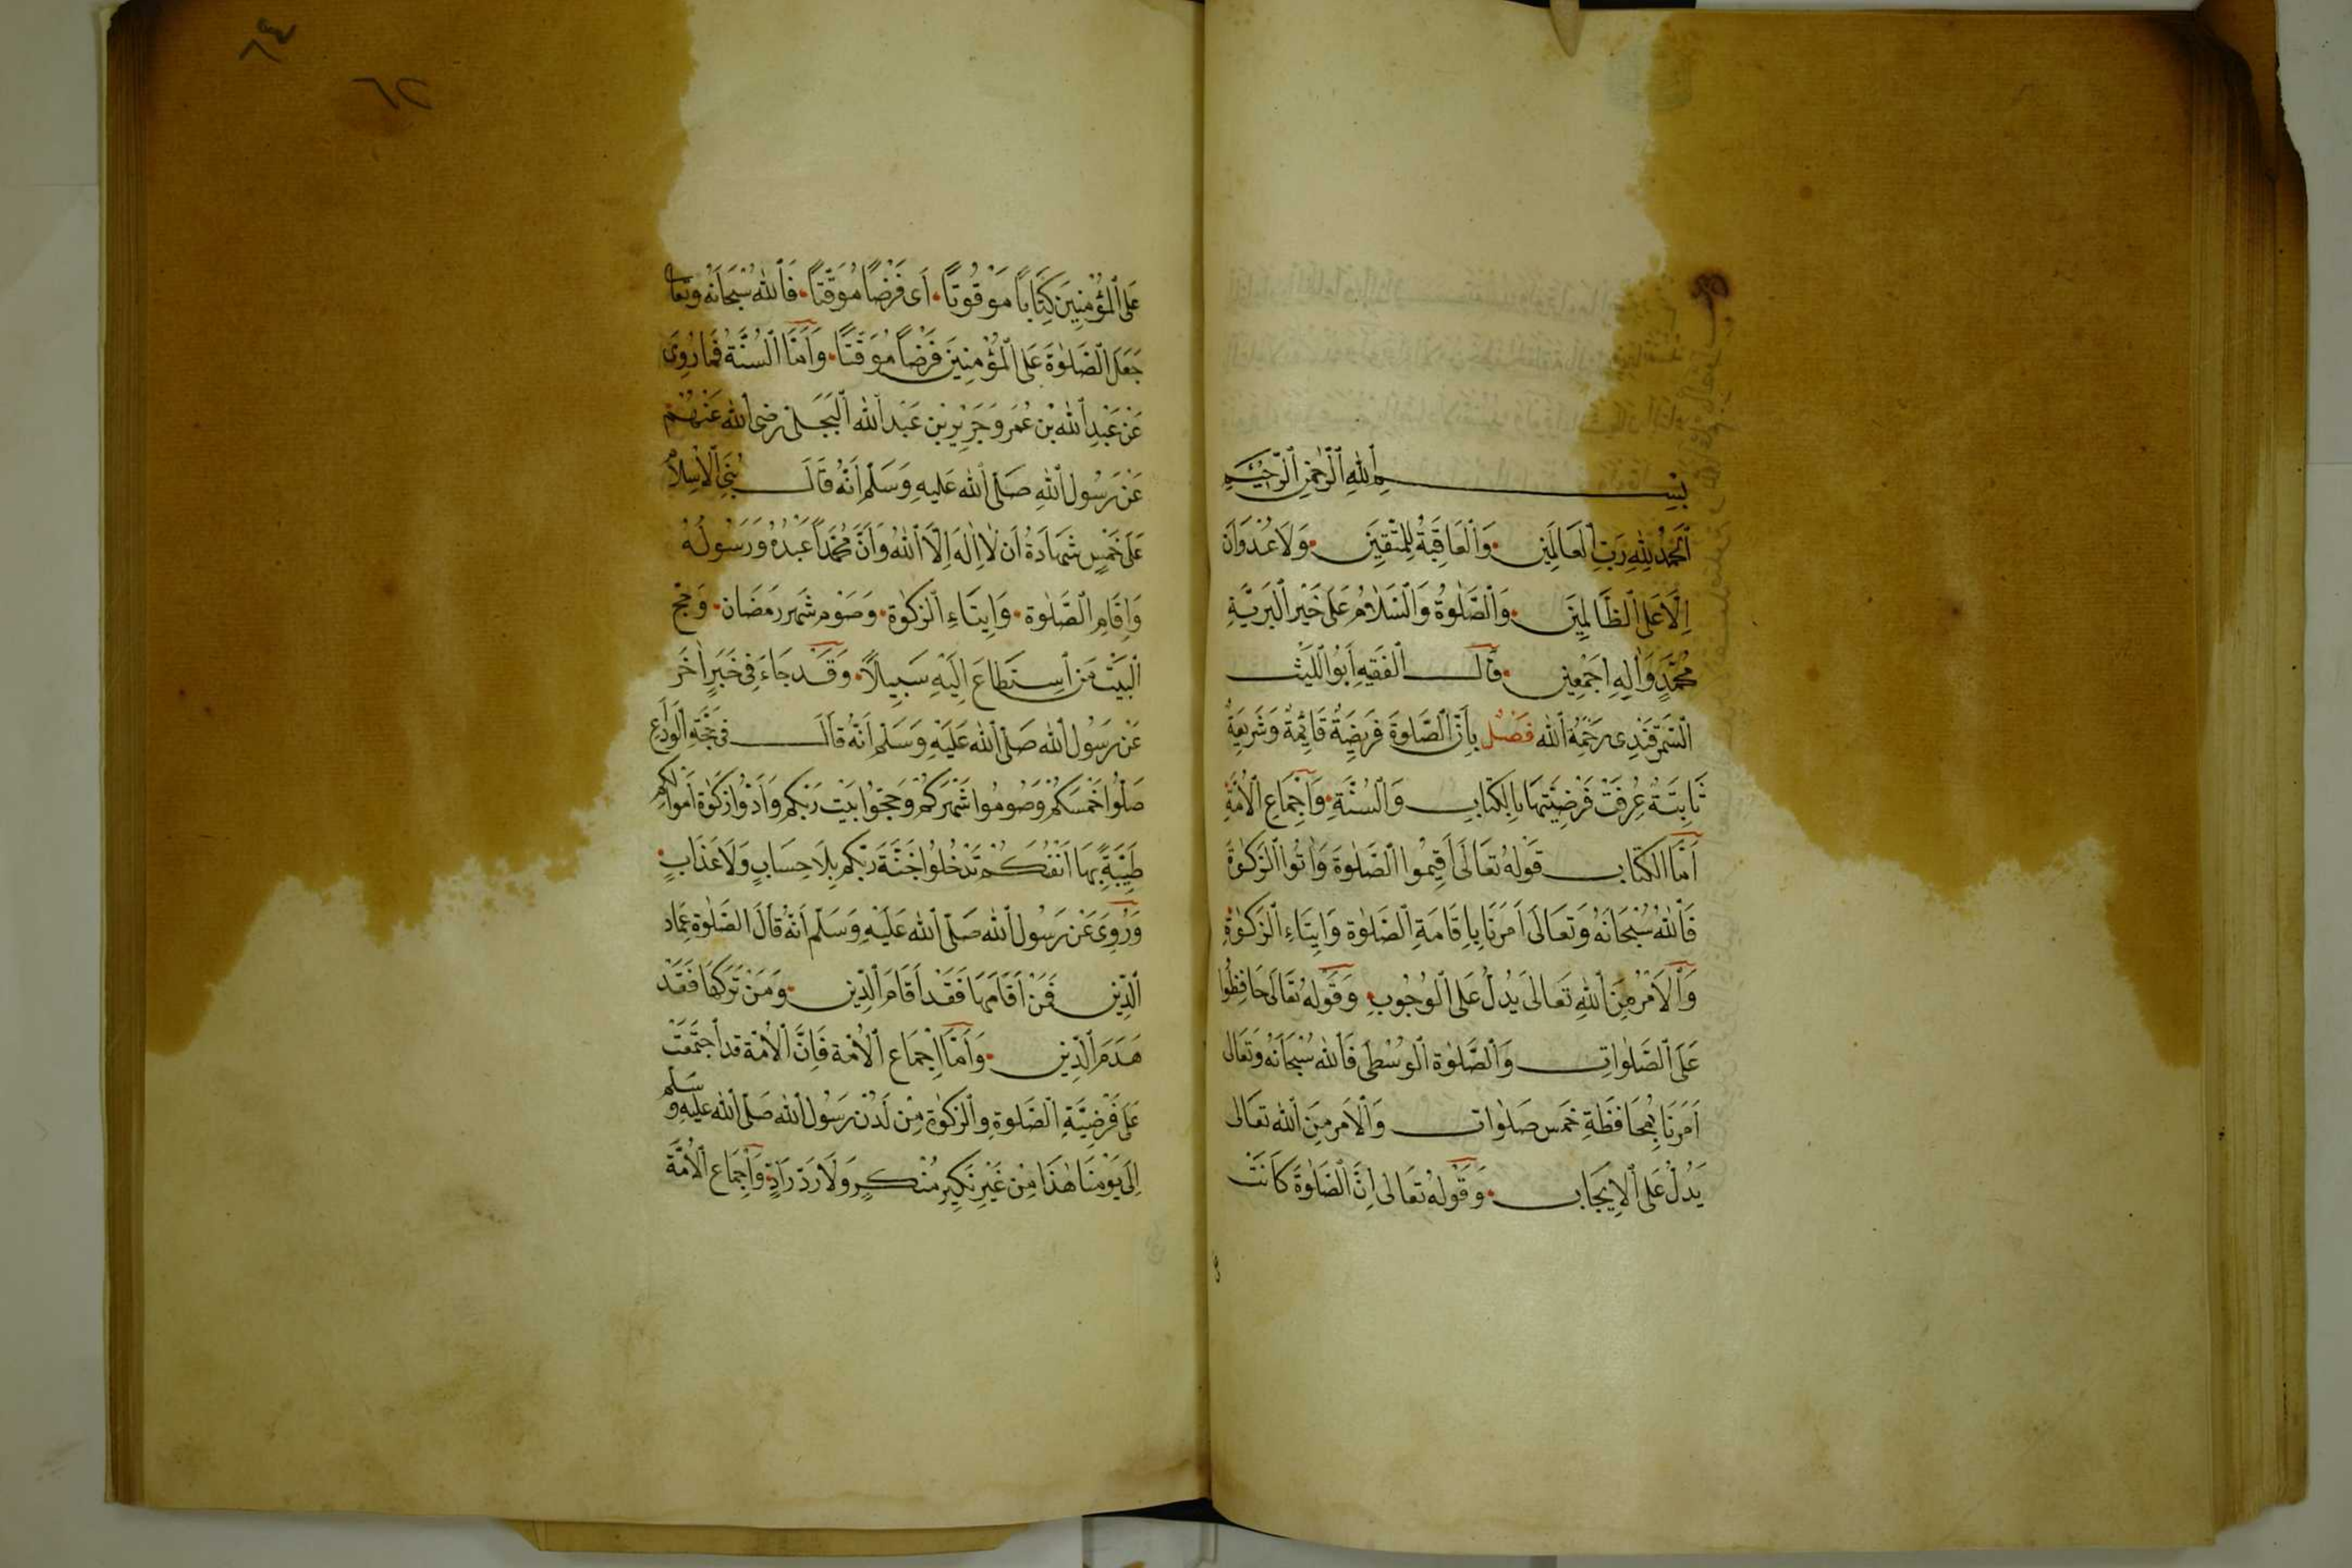 بِسْمِ اللهِ الرَّحْمٰنِ الرَّحِيْمِ
اَلْحَمْدُ لِلّٰهِ رَبِّ الْعَالَمِيْنَ وَالْعَاقِبَةُ لِلْمُتَّقِيْنَ وَلَا عُدْوَانَ
اِلَّا عَلَى الظَّالِمِيْنَ وَالصَّلٰوةُ وَالسَّلَامُ عَلٰى خَيْرِ الْبَرِيَّةِ
مُحَمَّدٍ وَاٰلِهِ اَجْمَعِيْنَ قَالَ الْفَقِيْهِ اَبُو اللَّيْثِ
السَّمَرْقَنْدِى رَحْمَةُ الله فَصْلٌ بِاَنَّ الصَّلٰوةَ فَرِيْضَةٌ قَائِمَةٌ وَشَرِيْعَةٌ
ثَابِتَةٌ عُرِفَتْ فَرْضِيَّتُهَا بِالْكِتَابِ وَالسُّنَّةِ وَاِجْمَاعِ الْاُمَّةِ
اَمَّا الْكِتَابُ قَوْلُهُ تَعَالَى اَقِيْمُوا الصَّلٰوةَ وَاٰتُوا الزَّكٰوةَ
فَاللهُ سُبْحَانَهُ وَتَعَالَى اَمَرَنَا بِاِقَامَةِ الصَّلٰوة وَاِيْتَاءِ الزَّكٰوةِ
وَالْاَمْرُ مِنَ اللهِ تَعَالَى يَدُلُّ عَلَى الْوُجُوْبِ وَقَوْلُهُ تَعَالَى حَافِظُوا
عَلَى الصَّلَوَاتِ وَالصَّلٰوةِ الْوُسْطٰى فَاللهُ سُبْحَانَهُ وَتَعَالٰى
اَمَرَنَا بِمُحَافَظَةِ خَمْسِ صَلَوَاتٍ وَالْاَمْرِ مِنَ الله تعَالى
يَدُلُّ عَلَى الْاِيْجَابِ وَقَوْلُهُ تَعَالَى اِنَّ الصَّلٰوةَ كَانَتْ
عَلَى الْمُؤْمِنِيْنَ كِتَابًا مَوْقُوْتًا اَى فَرْضًا مُوَقَّتًا فَاللهُ سُبْحَانَهُ وَتَعَالَى
جَعَلَ الصَّلٰوةَ عَلَى الْمُؤْمِنِيْنَ فَرْضًا مُوَقَّتًا وَاَمَّا السُّنَّةُ فَمَا رُوِىَ
عَنْ عَبْدِ اللهِ بْنِ عُمَر وَجَرِيْرِ بْنِ عَبْدِ الله الْبَجَلِى رَضِىَ الله عَنْهُمْ
عَنْ رَسُوْلِ اللهِ صَلَّى الله عَلَيْهِ وَسَلَّم اَنَّهُ قَالَ بُنِىَ الْاِسْلَامُ
عَلَى خَمْسٍ شَهَادَةُ اَن لَا اِلٰهَ اِلَّا اللهُ وَاَنَّ مُحَمَّدًا عَبْدُهُ وَرَسُوْلُهُ
وَاِقَامِ الصَّلٰوة وَاِيْتَاءِ الزَّكٰوة وَصَوْمِ شَهْرِ رَمَضَان وَحَجّ
الْبَيْتِ مَنِ اسْتَطَاعَ اِلَيْهِ سَبِيْلًا وَقَدْ جَاءَ فِى خَبَرٍ اٰخَر
عَنْ رَسُوْلِ الله صَلَّى الله عَلَيْهِ وَسَلَّم اَنَّهُ قَالَ فِى حَجَّةِ الْوَدَاعِ
صَلُّوا خَمْسَكُمْ وَصُوْمُوا شَهْرَكُمْ وَحُجُّوا بَيْتَ رَبِّكُمْ وَاَدُّوا زَكٰوةَ اَمْوَالِكُمْ
طَيِّبَةً بِهَا اَنْفُسُكُمْ تَدْخُلُوا جَنَّةَ رَبِّكُمْ بِلَا حِسَابٍ وَلَا عَذَابٍ
وَرُوِىَ عَنْ رَسُوْلِ الله صَلَّى الله عَلَيْهِ وَسَلَّم اَنَّهُ قَالَ الصَّلٰوة عِمَادُ
الدِّيْنِ فَمَنْ اَقَامَهَا فَقَدْ اَقَامَ الدِّيْنَ وَمَنْ تَرَكَهَا فَقَدْ
هَدَمَ الدِّيْنَ وَاَمَّا اِجْمَاع الْاُمَّة فَاِنَّ الْاُمَّة قد اجْتَمَعَتْ
عَلَى فَرْضِيَّةِ الصَّلٰوةِ وَالزَّكٰوة مِنْ لَدُنْ رَسُوْلِ الله صَلَّى الله عَلَيْهِ وَسَلَّم
اِلَى يَوْمِنَا هٰذَا مِنْ غَيْرِ نَكِيْرِ مُنْكِرٍ وَلَا رَدِّ رَادٍّ وَاِجْمَاع الْاُمَّة